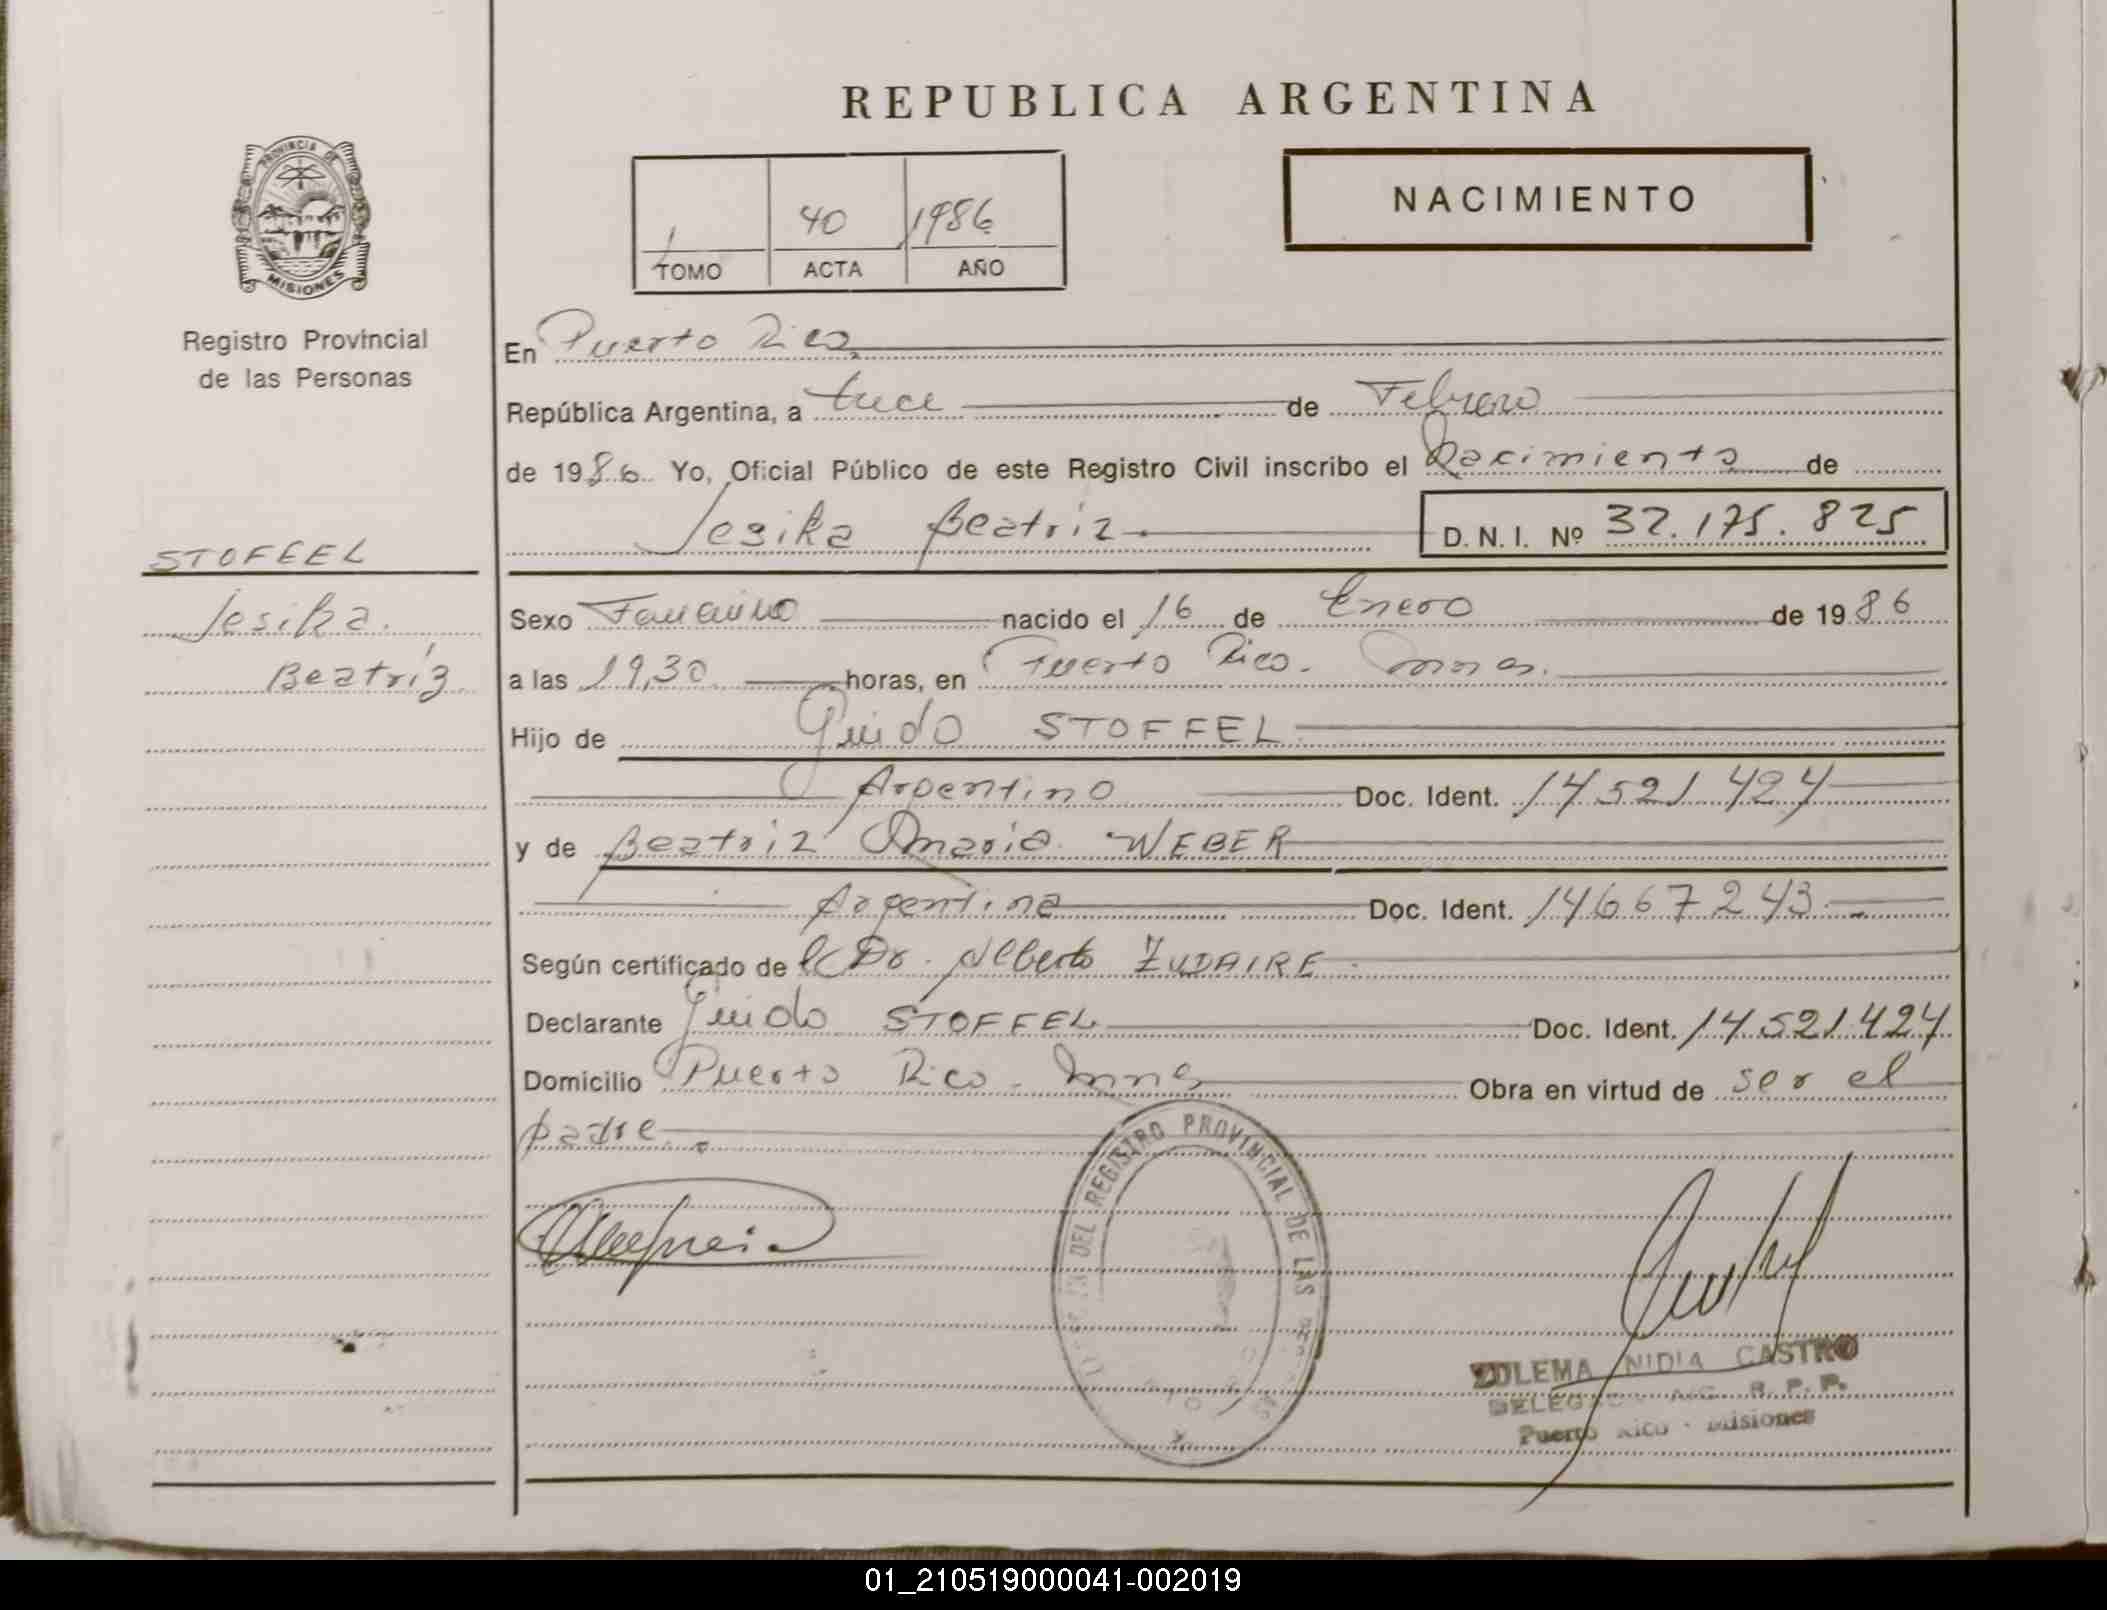 REPUBLICA ARGENTINA
PROVINCIA DE
MISIONES
Registro Provincial
de las Personas
1 40 1986
TOMO ACTA AÑO
NACIMIENTO
En Puerto Rico
República Argentina, a trece de Febrero
de 1986 Yo, Oficial Público de este Registro Civil inscribo el Nacimiento de
Jesika Beatriz D.N.I. Nº 32.175.825
STOFFEL
Jesika
Beatriz
Sexo Femenino nacido el 16 de Enero de 1986
a las 19,30 horas, en Puerto Rico. Mnes.
Hijo de Guido STOFFEL
Argentino Doc. Ident. 14521424
y de Beatriz Maria WEBER
Argentina Doc. Ident. 14667243
Según certificado de Dr. Alberto ZUDAIRE
Declarante Guido STOFFEL Doc. Ident. 14521424
Domicilio Puerto Rico - Mnes Obra en virtud de ser el
padre
DEL REGISTRO PROVINCIAL DE LAS
ZULEMA NIDIA CASTRO
R. P. P.
Puerto Rico - Misiones
01_210519000041-002019